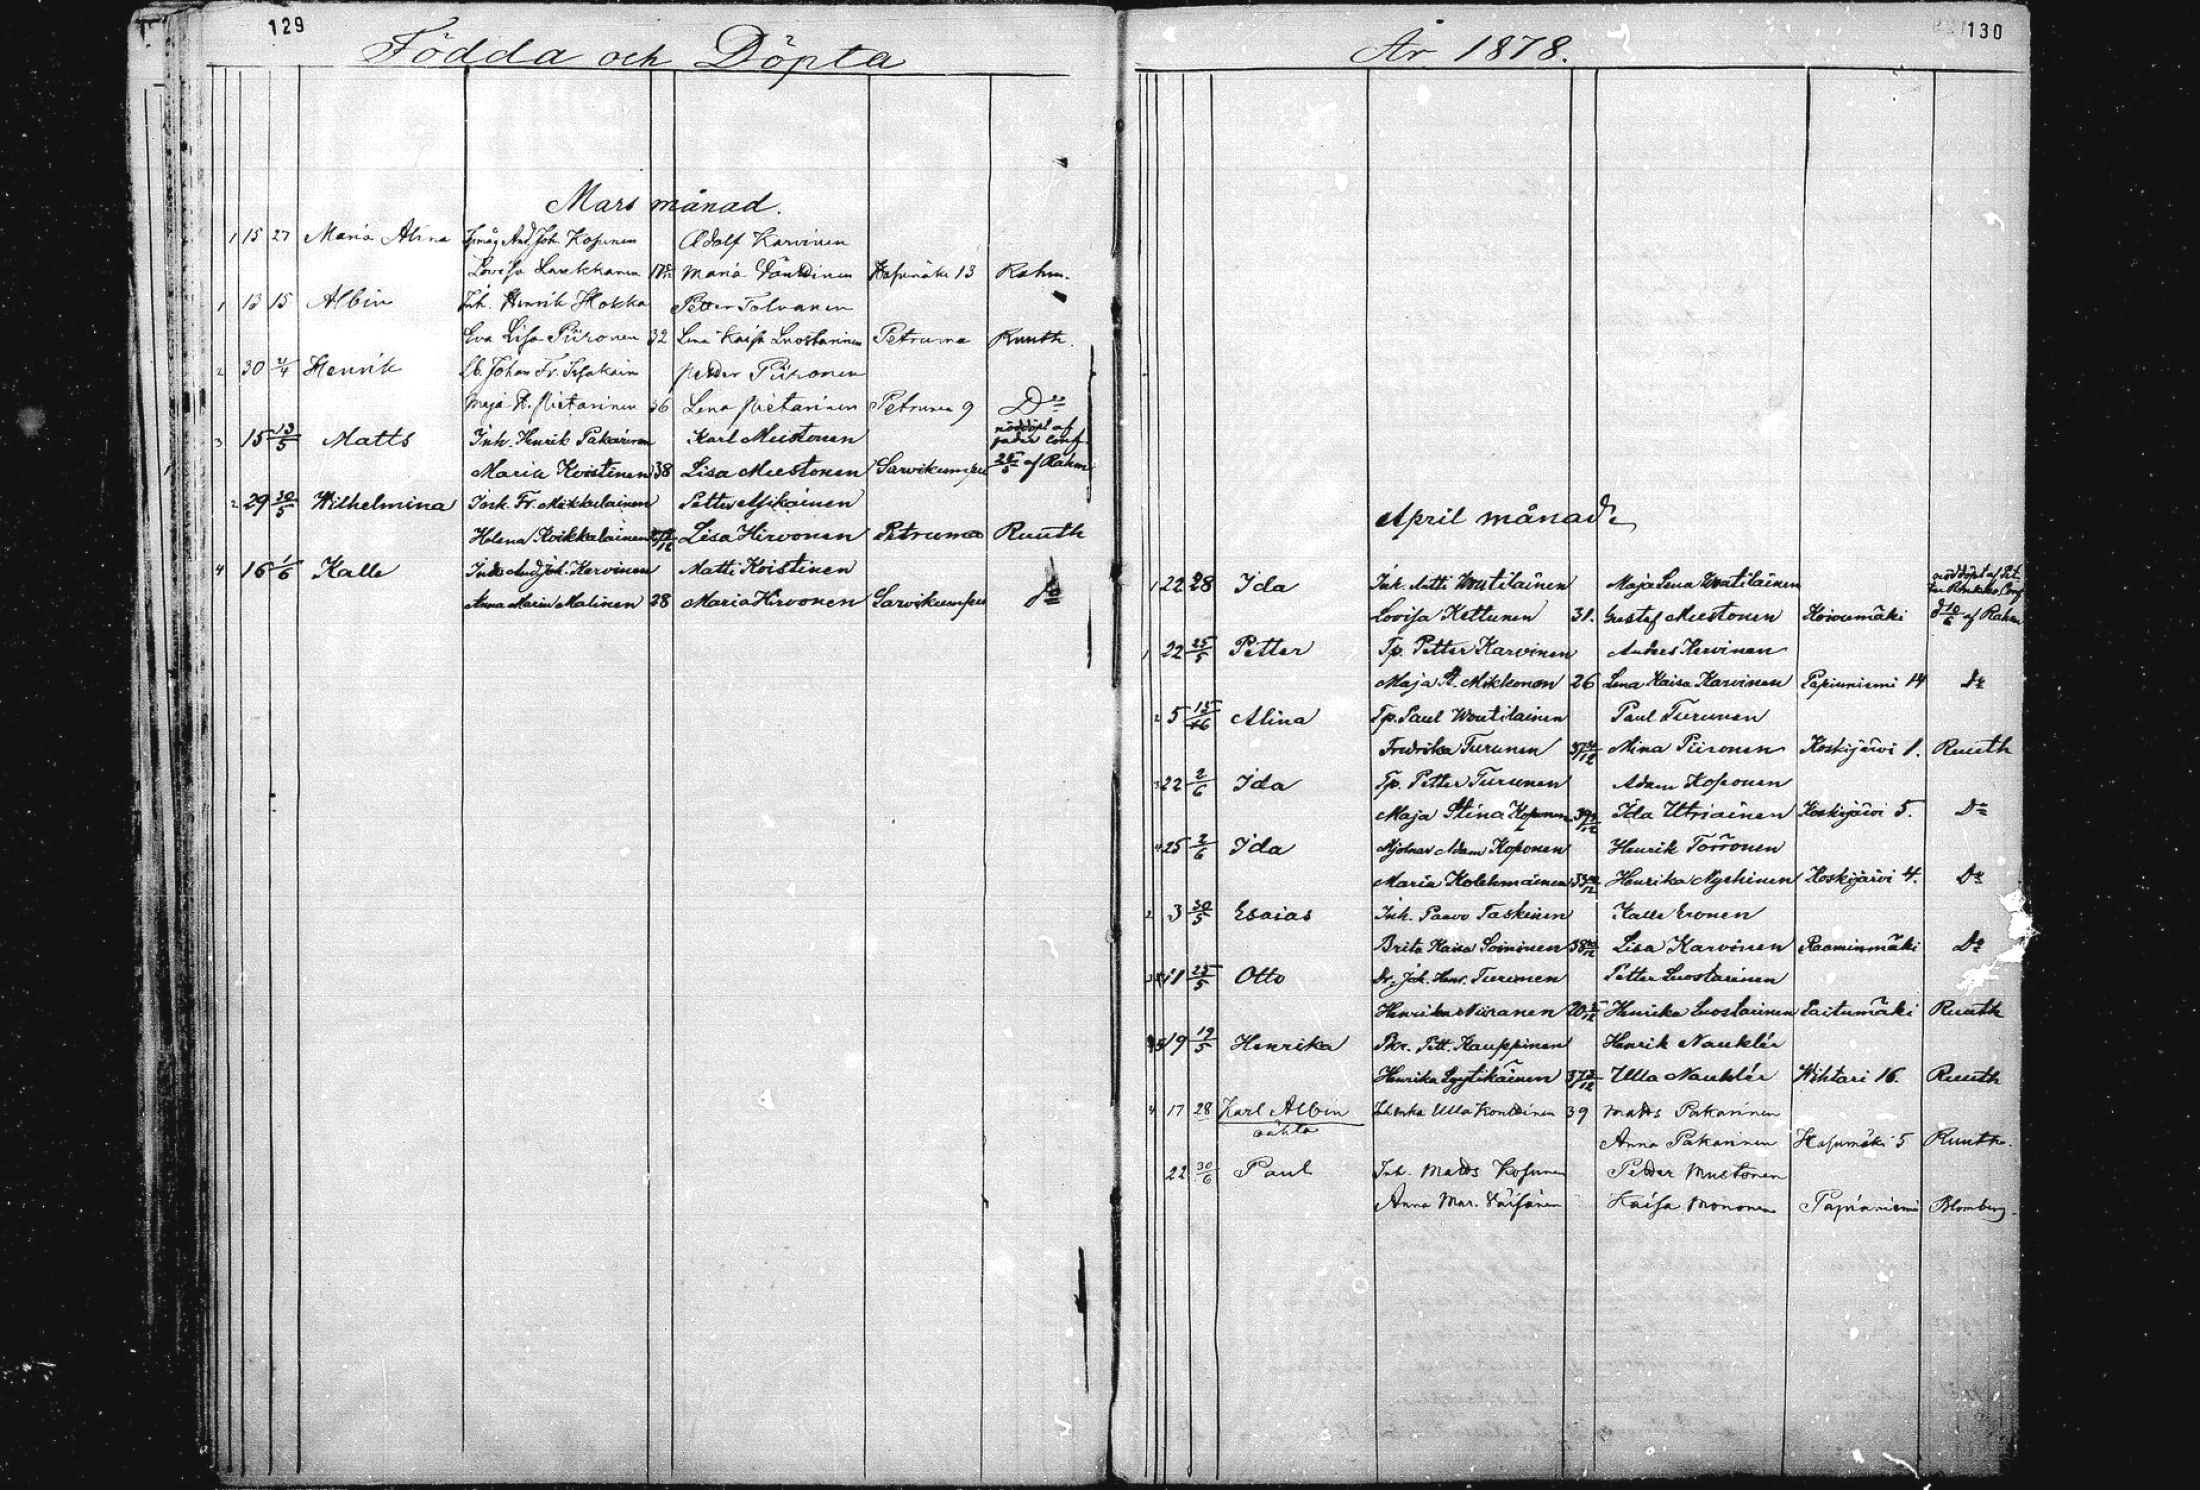 129
Födda och Döpta
Mars månad.
1 15 27 Maria Alina And. Joh. Kosunen Adolf Karvinen
Lovisa Maria Kosumäki 13 Rahm.
1 13 15 Albin Inh. Henrik Hokka Petter Tolvanen
Eva Lisa Piironen 32 Lena Kaisa Luostarinen Petruma Ruuth.
2 30 4/4 Henrik Johan Fr. Petter Piironen
Maja K. Pietarinen 36 Lena Pietarinen Petruma 9 Do
3 15 13/5 Matts Inh. Henrik Pakarinen Karl Mustonen nöddöpt af
fader conf.
Maria Koistinen 38 Lisa Mustonen Sarvikumpu 25/5 af Rahm
2 29 30/5 Wilhelmina Inh. Fr. Mikkulainen Petter Asikainen
Helena Koikkalainen Lisa Hirvonen Petruma Ruuth
4 16 1/6 Kalle And. Joh. Kervinen Matti Koistinen
Anna Maria Malinen 28 Maria Hirvonen Sarvikumpu do
130
År 1878.
April månad.
1 22 28 Ida Inh. Antti Woutilainen Maja Lena Woutilainen nöddöpt af Pet-
ter Conf
Lovisa Kettunen 31. Gustaf Mustonen Koivumäki d 10/6 af Rahm
1 22 25/5 Petter Tp. Petter Karvinen Anders Kervinen
Maja St. Mikkonen 26 Lena Kaisa Karvinen Papinniemi 14 Do
2 5 15/6 Alina Tp. Paul Woutilainen Paul Turunen
Fredrika Turunen Mina Piironen Koskijärvi 1. Ruuth
3 22 2/6 Ida Tp. Petter Turunen Adam Koponen
Maja Stina Koponen Ida Utriainen Koskijärvi 5. Do
4 25 2/6 Ida Adam Koponen Henrik Törrönen
Maria Kolehmainen Henrika Nyyhinen Koskijärvi 4. Do
2 3 30/5 Esaias Inh. Paavo Taskinen Kalle Eronen
Brita Kaisa Soininen Lisa Karvinen Raaminmäki Do
11 25/5 Otto Dr. Joh. Henr. Turunen Petter Luostarinen
Henrika Niiranen Henrika Luostarinen Laitumäki Ruuth
19 19/5 Henrika Pet. Kauppinen Henrik Nauklér
Henrika Lyytikäinen Ulla Nauklér Wihtari 16. Ruuth
4 17 28 Karl Albin Ulla 39 Matts Pakarinen
oäkta
Anna Pakarinen Kosumäki 5 Ruuth.
22 30/6 Paul Inh. Matts Kosunen Petter Mustonen
Anna Mar. Väisänen Kaisa Mononen Papinniemi Blomberg.